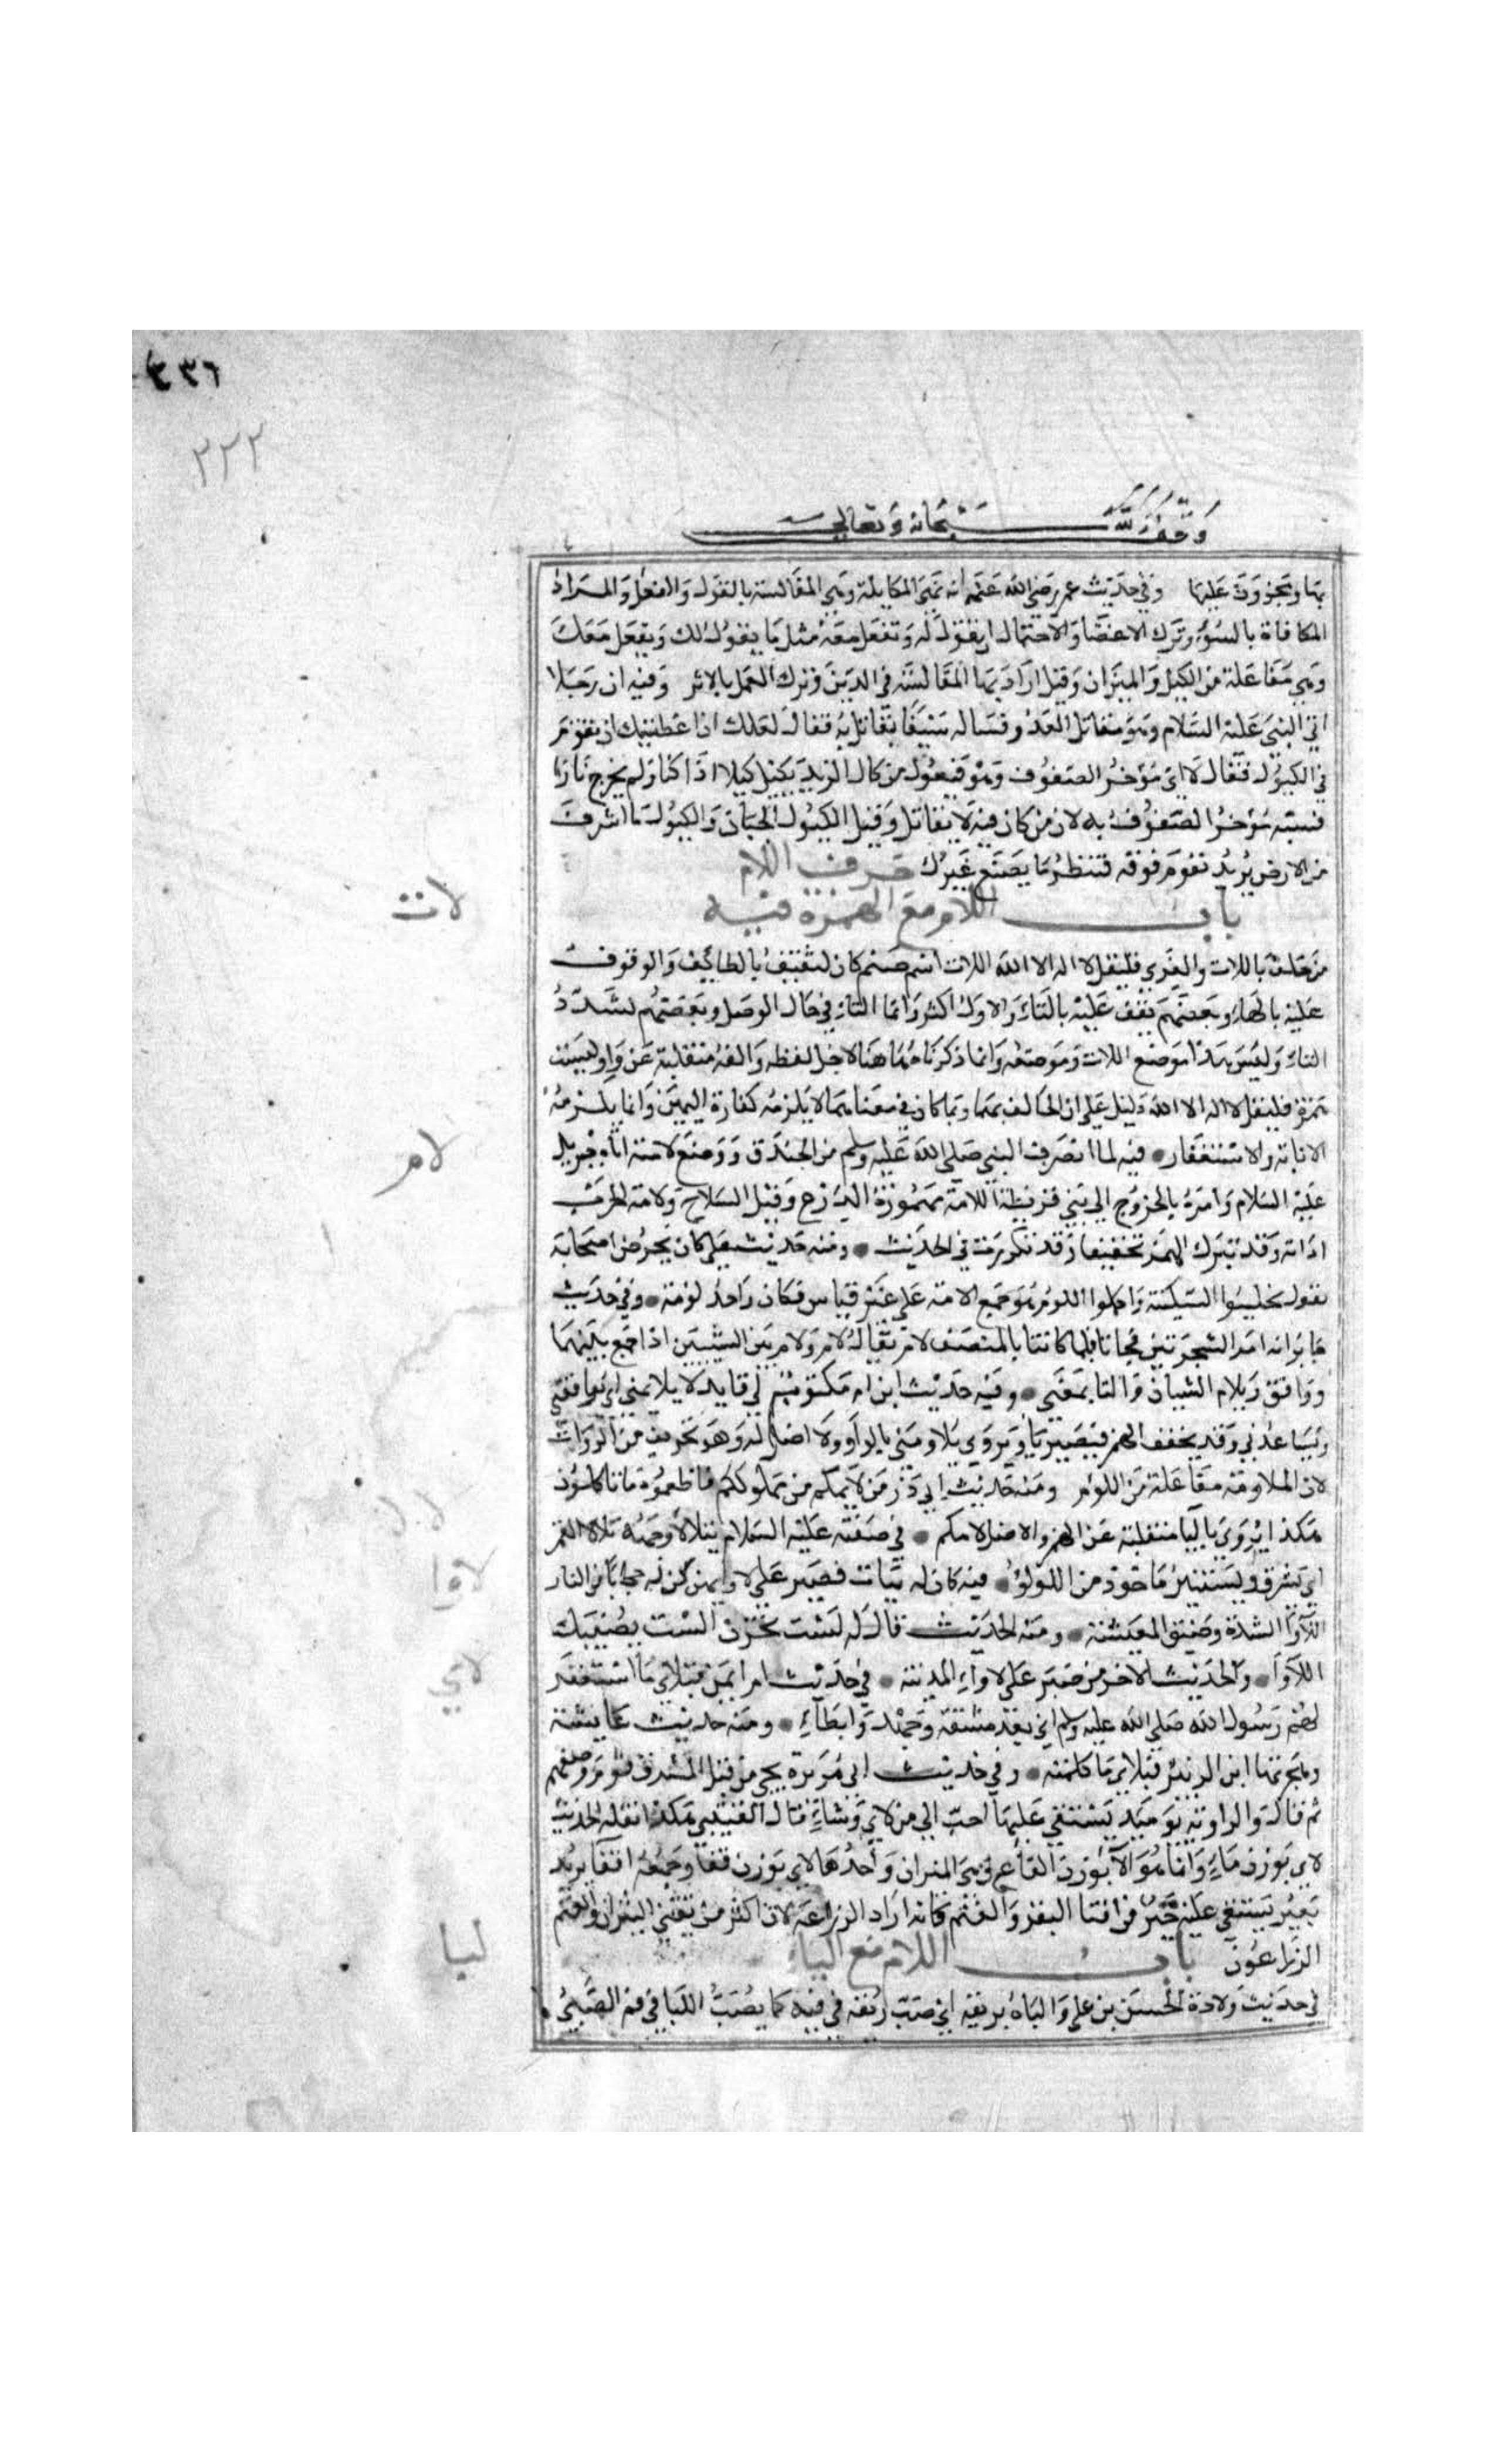 ٤٣٦
٣٢٢
وقف لله سبحانه وتعالى
بها ويجوز وقف عليها وفي حديث عمر رضي الله عنه أنه نهى المكايلة وهي المقايسة بالقول والفعل والمراد
المكافاة بالسوء وترك الاغضا والاحتمال اى تقول له وتفعل معه مثل ما يقول لك ويفعل معك
وهي مفاعلة من الكيل والميزان وقيل اراد بها المقايسة في الدين وترك العمل بالاثر وفيه ان رجلا
اتي النبي عليه السلام وهو يقاتل العدو فساله سيفا يقاتل به فقال لعلك ان اعطيتك ان تقوم
في الكيول فقال لا اى مؤخر الصفوف وهو فيعول من كال الزند يكيل كيلا اذا كبا ولم يخرج نارا
فشبه مؤخر الصفوف به لان من كان فيه لا يقاتل وقيل الكيول الجبان والكيول ما اشرف
من الارض يريد تقوم فوقه فتنظر ما يصنع غيرك حرف اللام
باب اللام مع الهمزة فيه
لات
من حلف باللات والعزى فليقل لا اله الا الله اللات اسم صنم كان لثقيف بالطائف والوقوف
عليه بالهاء وبعضهم يقف عليه بالتاء والاول اكثر وانما التاء في حال الوصل وبعضهم يشدد
التاء وليس هذا موضع اللات وموضعه وانما ذكرناه هاهنا لاجل لفظه والفه منقلبة عن واو وليست
همزة فليقل لا اله الا الله دليل على ان الحالف بهما وبما كان في معناهما لا يلزمه كفارة اليمين وانما يلزمه
الانابة والاستغفار فيه لما انصرف النبي صلى الله عليه وسلم من الخندق ووضع لامته اتاه جبريل
لام
عليه السلام وامره بالخروج الى بني قريظة اللامة مهموزة الدرع وقيل السلاح ولامة الحرب
اداته وقد يترك الهمز تخفيفا وقد تكررت في الحديث ومنه حديث علي كان يحرض اصحابه
يقول تجلببوا السكينة واكملوا اللوم هو جمع لامة على غير قياس فكان واحده لومة وفي حديث
جابر انه امر الشجرتين فجاءتا فلما كانتا بالمنصف لام بينهما يقال لام ولاءم بين الشيئين اذا جمع بينهما
ووافق وتلام الشيان والتاما بمعنى وفيه حديث ابن ام مكتوم لي قايد لا يلايمني اى يوافقني
ويساعدني وقد يخفف الهمز فيصير يا ويروى يلاومني بالواو ولا اصل له وهو تحريف من الرواة
لان الملاومة مفاعلة من اللوم ومنه حديث ابي ذر من لايمكم من مملوككم فاطعموه مما تاكلون
هكذا يروى باليا منقلبة عن الهمز والاصل لاءمكم في صفته عليه السلام يتلالأ وجهه تلألؤ القمر
اى يشرق ويستنير ماخوذ من اللؤلؤ فيه كان له بنات فصبر على لاوايهن كن له حجابا من النار
لاوا
اللاوا الشدة وضيق المعيشة ومنه الحديث قال له لست تحزن الست يصيبك
اللاوا والحديث الاخر من صبر على لاواء المدينة في حديث ام ايمن فبلاي ما استغفر
لاي
لهم رسول الله صلى الله عليه وسلم اي بعد مشقة وجهد وابطاء ومنه حديث عايشة
وهجرتها ابن الزبير فبلاي ما كلمته وفي حديث ابي هريرة يجي من قبل المشرق قوم وصفهم
ثم قال والراوية يوميذ يستقي عليها احب الي من لاي وشاء قال القتيبي هكذا نقله الحديث
لاي بوزن ماء وانما هو الآء بوزن العاع وهي الثيران واحدها لاى بوزن قفا وجمعه اقفا يريد
بعير يستقي عليه خير من اقتنا البقر والغنم كانه اراد الزراعة لان اكثر من يقتني الثيران والغنم
الزراعون باب اللام مع الباء
لبا
في حديث ولادة الحسن بن علي والباه بريقه اي صب ريقه في فيه كما يصب اللبا في فم الصبي